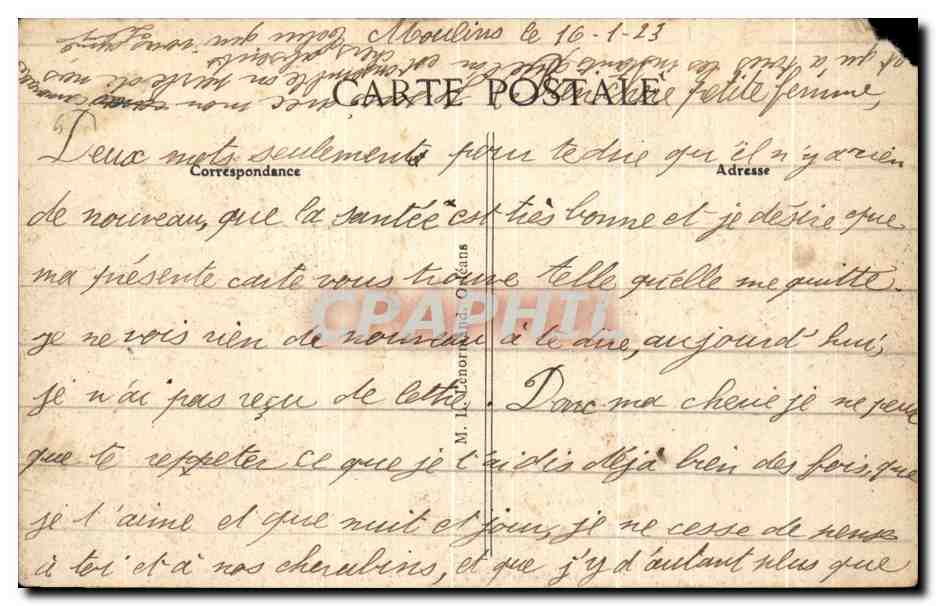 Moulins le 16-1-23
CARTE POSTALE
petite femme,
Deux mots seulement pour te dire qu'il n'y a rien
Correspondance
Adresse
de nouveau, que la santée est très bonne et je désire que
ma présente carte vous trouve telle qu'elle me quitte.
CPAPHIL
M. L. Lenormand, Orléans
je ne vois rien de nouveau à te dire, aujourd'hui,
je n'ai pas reçu de lettre. Donc ma cherie je ne peux
que te reppeter ce que je t'ai dis déjà bien des fois, que
je t'aime et que nuit et jour, je ne cesse de penser
à toi et à nos cherubins, et que j'y d'autant plus que